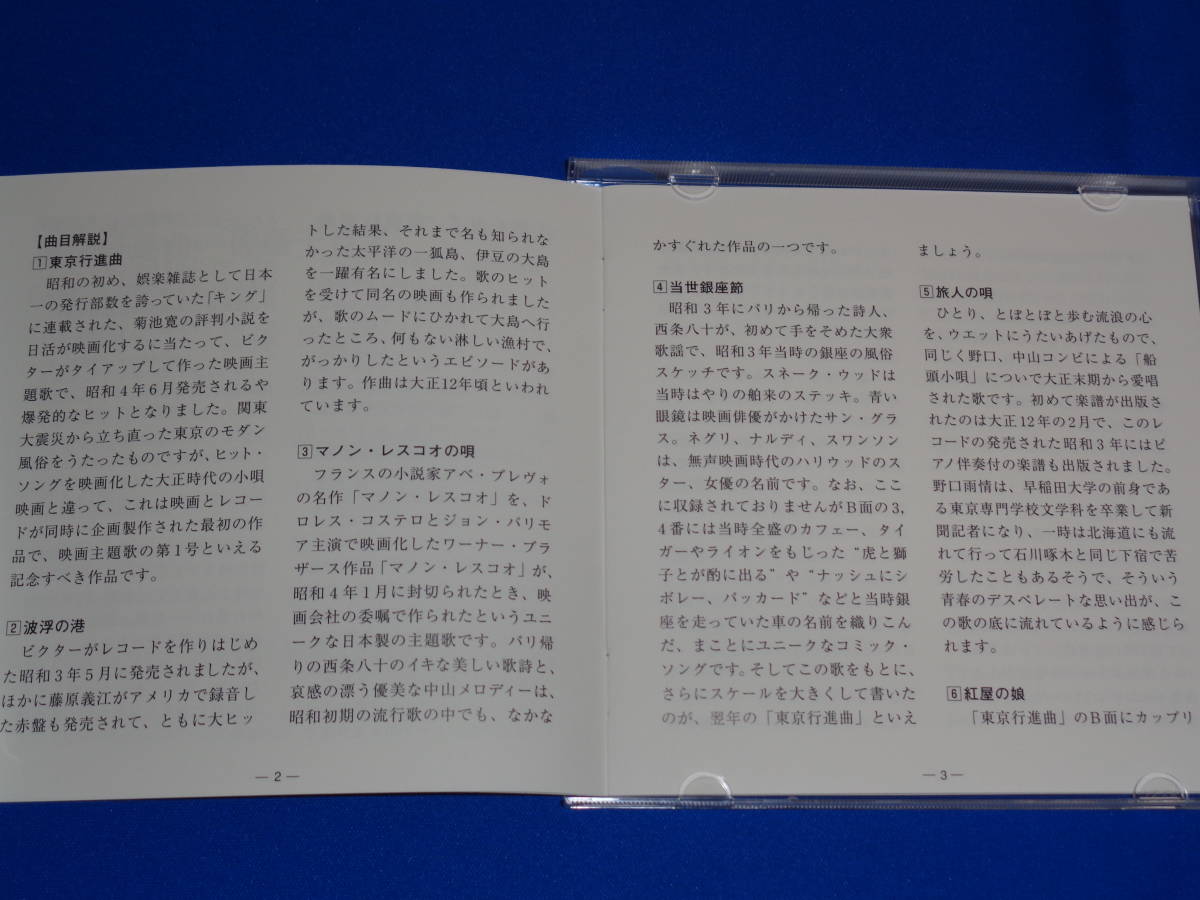 【曲目解説】
1東京行進曲
昭和の初め、娯楽雑誌として日本
一の発行部数を誇っていた「キング」
に連載された、菊池寛の評判小説を
日活が映画化するに当たって、ビク
ターがタイアップして作った映画主
題歌で、昭和4年6月発売されるや
爆発的なヒットとなりました。関東
大震災から立ち直った東京のモダン
風俗をうたったものですが、ヒット・
ソングを映画化した大正時代の小唄
映画と違って、これは映画とレコー
ドが同時に企画製作された最初の作
品で、映画主題歌の第1号といえる
記念すべき作品です。
2波浮の港
ビクターがレコードを作りはじめ
た昭和3年5月に発売されましたが、
ほかに藤原義江がアメリカで録音し
た赤盤も発売されて、ともに大ヒッ
トした結果、それまで名も知られな
かった太平洋の一狐島、伊豆の大島
を一躍有名にしました。歌のヒット
を受けて同名の映画も作られました
が、歌のムードにひかれて大島へ行
ったところ、何もない淋しい漁村で、
がっかりしたというエピソードがあ
ります。作曲は大正12年頃といわれ
ています。
3マノン・レスコオの唄
フランスの小説家アベ・プレヴォ
の名作「マノン・レスコオ」を、ド
ロレス・コステロとジョン・バリモ
ア主演で映画化したワーナー・ブラ
ザース作品「マノン・レスコオ」が、
昭和4年1月に封切られたとき、映
画会社の委嘱で作られたというユニ
ークな日本製の主題歌です。パリ帰
りの西条八十のイキな美しい歌詩と、
哀感の漂う優美な中山メロディーは、
昭和初期の流行歌の中でも、なかな
— 2 —
かすぐれた作品の一つです。
4当世銀座節
昭和3年にパリから帰った詩人、
西条八十が、初めて手をそめた大衆
歌謡で、昭和3年当時の銀座の風俗
スケッチです。スネーク・ウッドは
当時はやりの舶来のステッキ。青い
眼鏡は映画俳優がかけたサン・グラ
ス。ネグリ、ナルディ、スワンソン
は、無声映画時代のハリウッドのス
ター、女優の名前です。なお、ここ
に収録されておりませんがB面の3,
4番には当時全盛のカフェー、タイ
ガーやライオンをもじった“虎と獅
子とが酌に出る”や“ナッシュにシ
ボレー、パッカード”などと当時銀
座を走っていた車の名前を織りこん
だ、まことにユニークなコミック・
ソングです。そしてこの歌をもとに、
さらにスケールを大きくして書いた
のが、翌年の「東京行進曲」といえ
ましょう。
5旅人の唄
ひとり、とぼとぼと歩む流浪の心
を、ウエットにうたいあげたもので、
同じく野口、中山コンビによる「船
頭小唄」についで大正末期から愛唱
された歌です。初めて楽譜が出版さ
れたのは大正12年の2月で、このレ
コードの発売された昭和3年にはピ
アノ伴奏付の楽譜も出版されました。
野口雨情は、早稲田大学の前身であ
る東京専門学校文学科を卒業して新
聞記者になり、一時は北海道にも流
れて行って石川啄木と同じ下宿で苦
労したこともあるそうで、そういう
青春のデスペレートな思い出が、こ
の歌の底に流れているように感じら
れます。
6紅屋の娘
「東京行進曲」のB面にカップリ
— 3 —